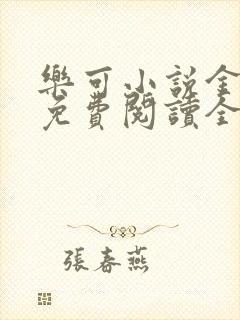 樂可小說全
免費閱讀全
張春燕